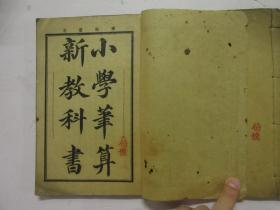 小學筆算
新教科書